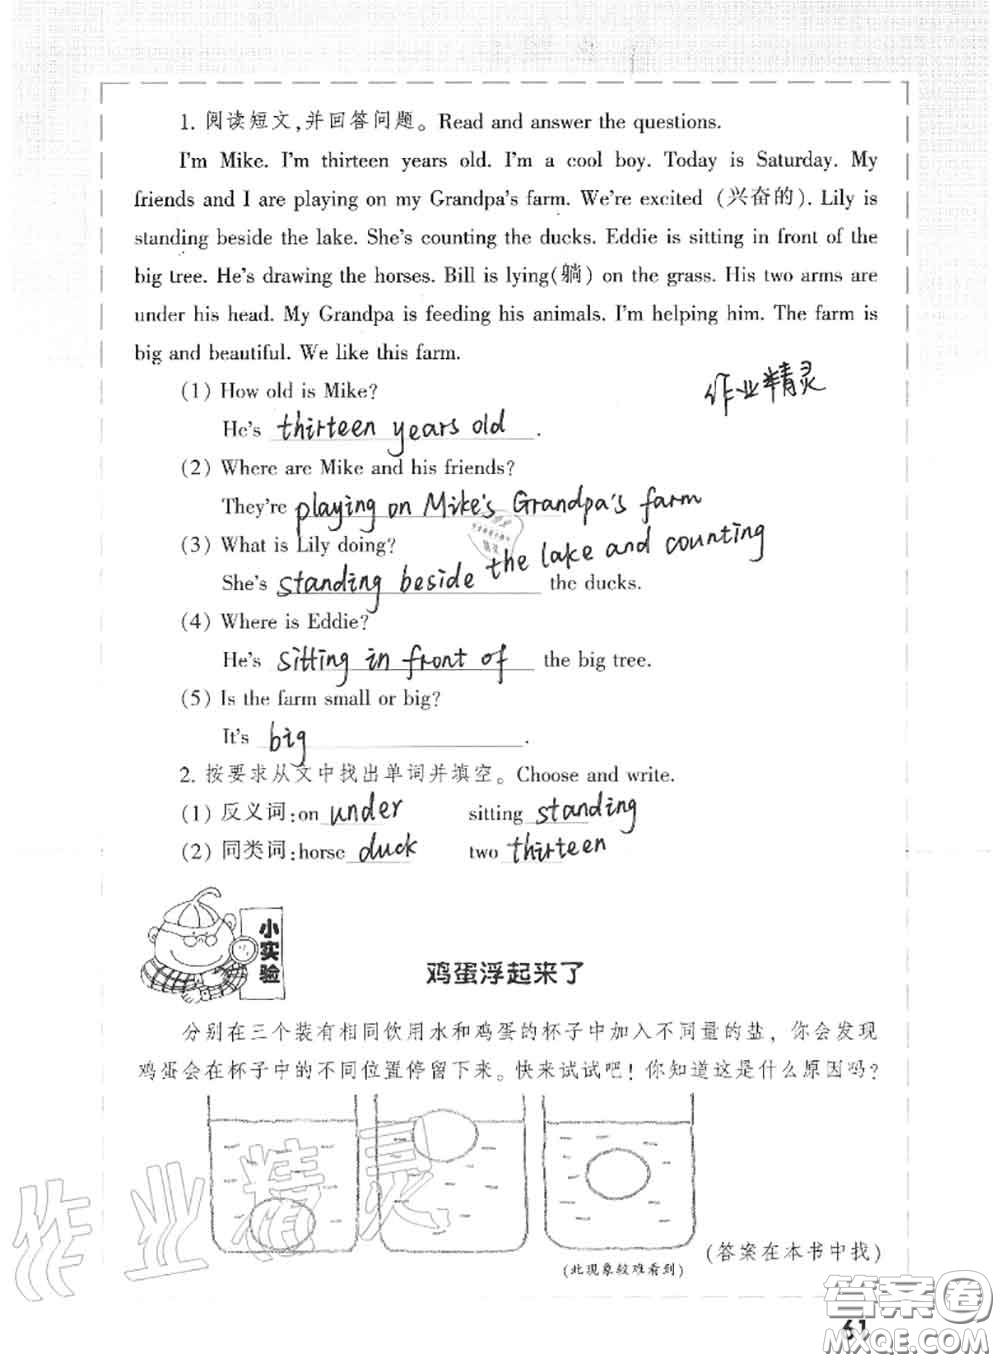 1. 阅读短文,并回答问题。Read and answer the questions.
I'm Mike. I'm thirteen years old. I'm a cool boy. Today is Saturday. My
friends and I are playing on my Grandpa's farm. We're excited (兴奋的). Lily is
standing beside the lake. She's counting the ducks. Eddie is sitting in front of the
big tree. He's drawing the horses. Bill is lying(躺) on the grass. His two arms are
under his head. My Grandpa is feeding his animals. I'm helping him. The farm is
big and beautiful. We like this farm.
(1) How old is Mike?
作业精灵
He's thirteen years old.
(2) Where are Mike and his friends?
They're playing on Mike's Grandpa's farm
(3) What is Lily doing?
She's standing beside the lake and counting the ducks.
(4) Where is Eddie?
He's sitting in front of the big tree.
(5) Is the farm small or big?
It's big.
2. 按要求从文中找出单词并填空。Choose and write.
(1) 反义词:on under sitting standing
(2) 同类词:horse duck two thirteen
小实验
鸡蛋浮起来了
分别在三个装有相同饮用水和鸡蛋的杯子中加入不同量的盐，你会发现
鸡蛋会在杯子中的不同位置停留下来。快来试试吧！你知道这是什么原因吗？
作业精灵
(此现象较难看到)
(答案在本书中找)
答案圈
MXQE.COM
61